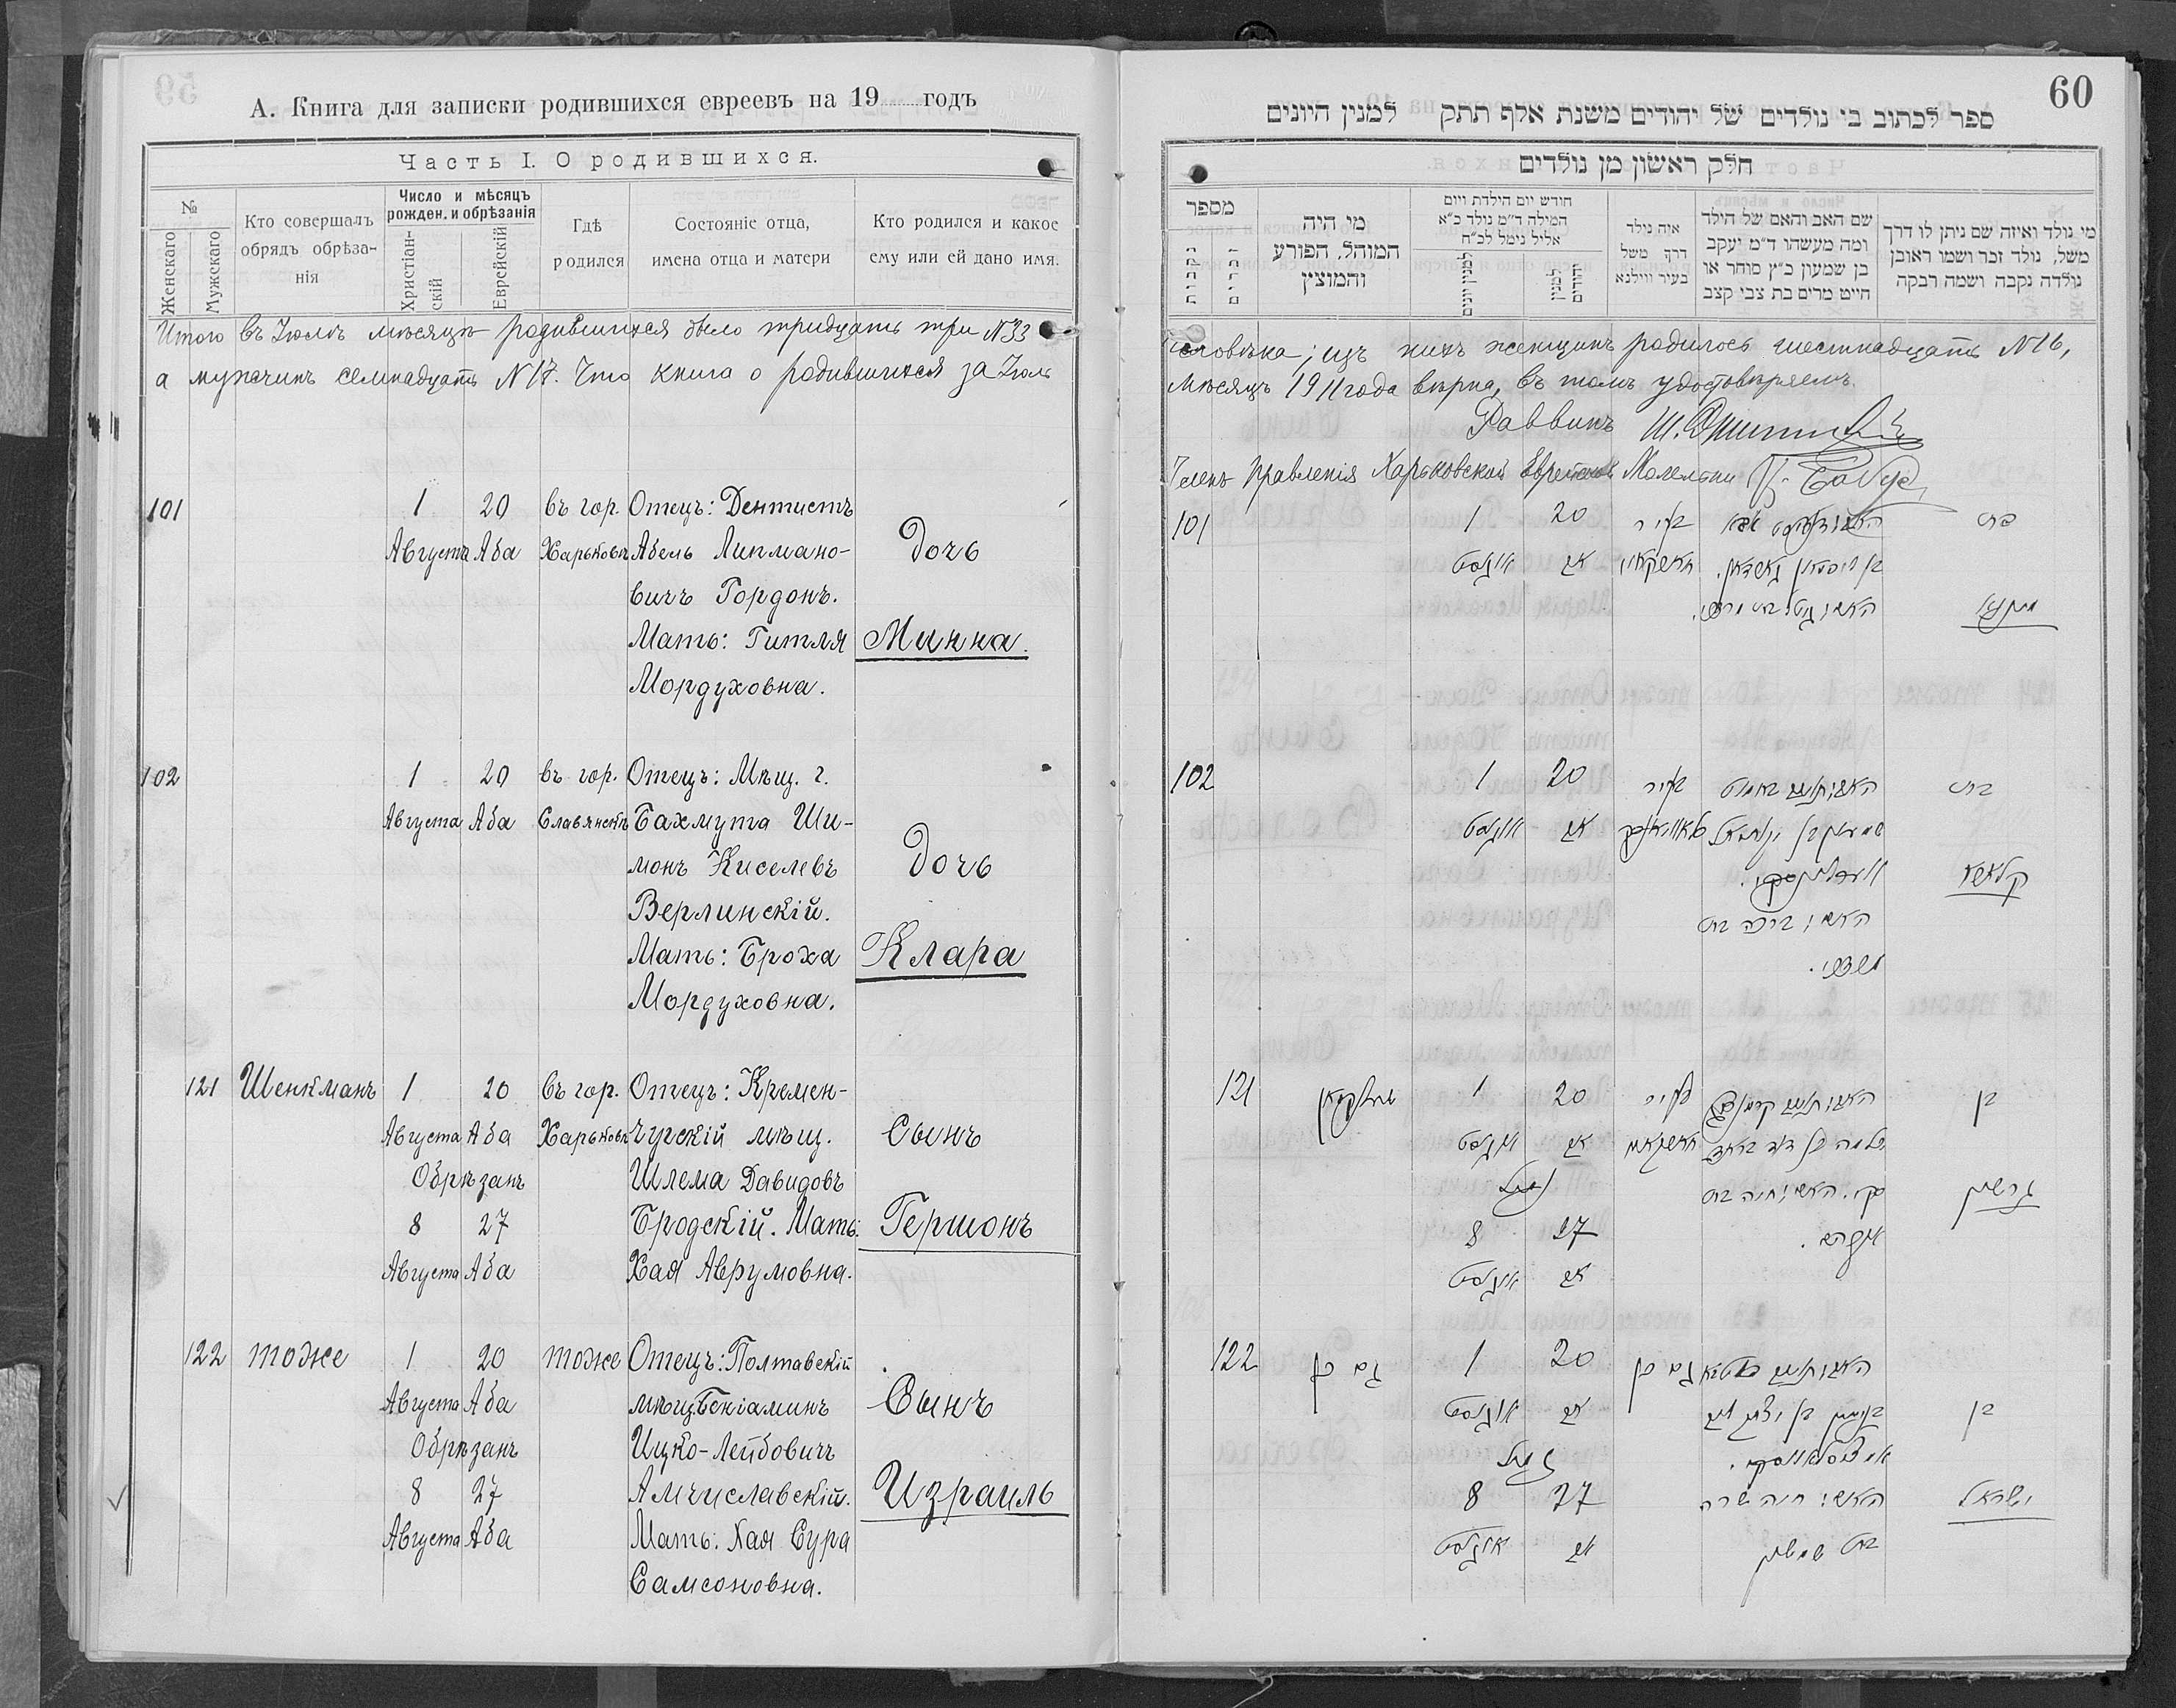 А. Книга для записки родившихся евреевъ на 19 годъ
Часть I. О родившихся.
№
Женскаго
Мужскаго
Кто совершалъ
обрядъ обрѣза-
нія
Число и мѣсяцъ
рожден. и обрѣзанія
Христіан-
скій
Еврейскій
Гдѣ
родился
Состояніе отца,
имена отца и матери
Кто родился и какое
ему или ей дано имя.
Итого въ Іюлѣ мѣсяцѣ родившихся было тридцать три №33
а мужчинъ семнадцать №17. Что книга о родившихся за Іюль
101
1 20 въ гор. Отецъ: Дентистъ
Августа Аба Харьковѣ Абель Липмано- Дочь
вичъ Гордонъ.
Мать: Гитля Минна.
Мордуховна.
102
1 20 въ гор. Отецъ: Мѣщ. г.
Августа Аба Славянскѣ Бахмута Ши-
монъ Киселевъ Дочь
Верлинскій.
Мать: Броха Клара
Мордуховна.
121 Шенкманъ 1 20 въ гор. Отецъ: Кремен-
Августа Аба Харьковѣ чугскій мѣщ. Сынъ
Обрѣзанъ Шлема Давидовъ
8 27 Бродскій. Мать: Гершонъ
Августа Аба Хая Аврумовна.
122 тоже 1 20 тоже Отецъ: Полтавскій
Августа Аба мѣщ. Бенiаминъ Сынъ
Обрѣзанъ Ицко-Лейбовичъ
8 27 Амчиславскій. Израиль
Августа Аба Мать: Хая Сура
Самсоновна.
60
ספר לכתוב בי נולדים של יהודים משנת אלף תתק למנין היונים
חלק ראשון מן נולדים
מספר
נקבות
זכרים
מי היה
המוהל, הפורע
והמוצץ
חודש יום הילדת ויום
המילה ד״מ נולד כ״א
אליל נימל לכ״ח
למנין יונים
למנין
יהודים
איה נולד
דרך משל
בעיר ווילנא
שם האב והאם של הילד
ומה מעשהו ד״מ יעקב
בן שמעון כ״ץ סוחר או
חייט מרים בת צבי קצב
מי נולד ואיזה שם ניתן לו דרך
משל, נולד זכר ושמו ראובן
נולדה נקבה ושמה רבקה
человѣка; изъ нихъ женщинъ родилось шестнадцать №16,
мѣсяцъ 1911 года вѣрна, въ томъ удостовѣряемъ.
Раввинъ
Членъ Правленія Харьковской Еврейской Молельни
101 1 20 בעיר בת
אב אוגוסט
102 1 20 בעיר בת
אב אוגוסט
קלארא
האם: ברכה בת
מרדכי.
121 1 20 בעיר בן
שלמה בן דוד אב אוגוסט
נימול גרשון
האם: חיה בת
8 27
אב אוגוסט
122 גם כן 1 20 גם כן
אב אוגוסט בן
נימול
8 27 האם: חיה שרה ישראל
אב אוגוסט בת שמשון